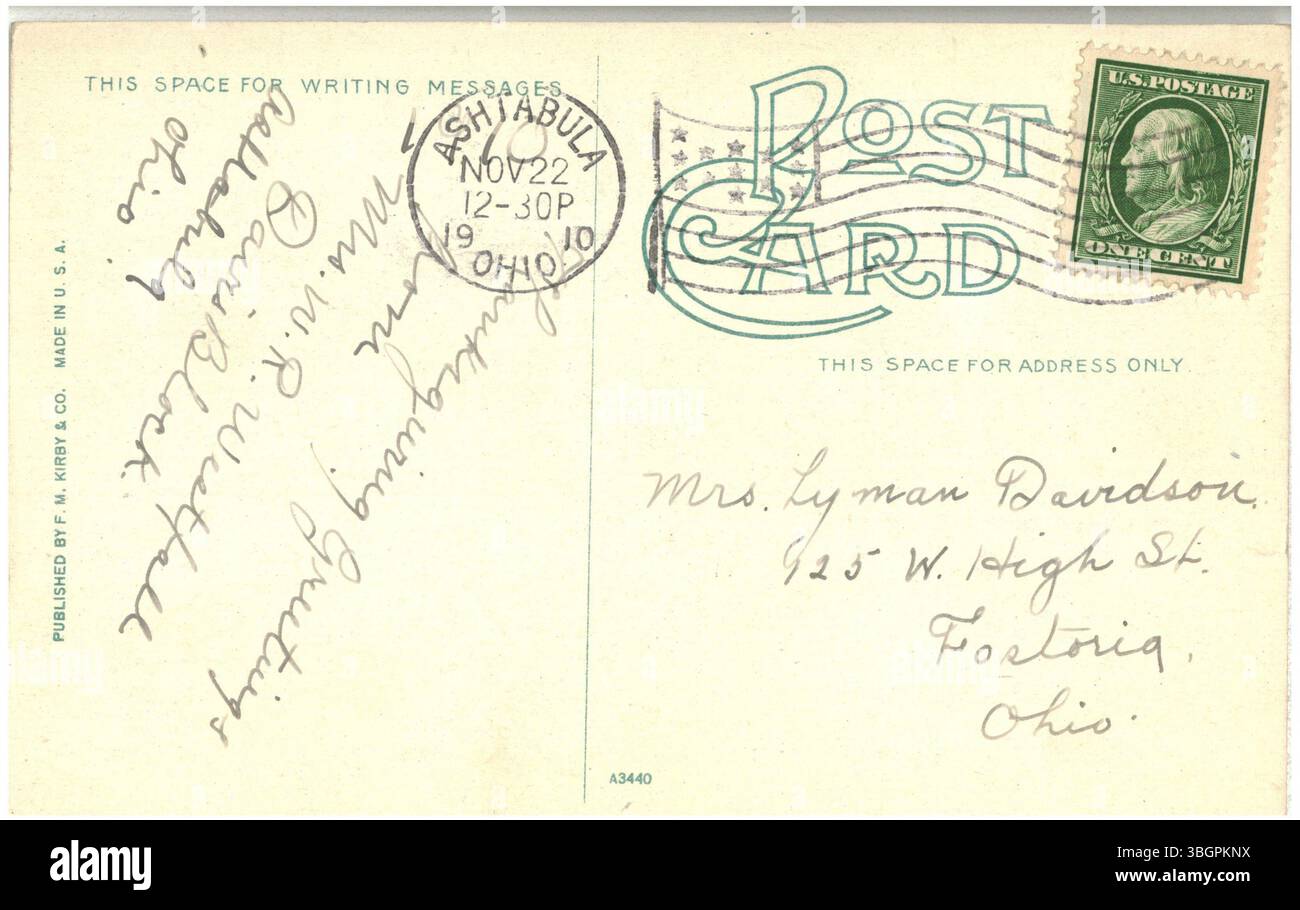 THIS SPACE FOR WRITING MESSAGES
ASHTABULA
NOV 22
12-30P
19 10
OHIO
Thanksgiving Greetings
from
Mrs. W. R. Westfall
Davis Block
Ohio
PUBLISHED BY F. M. KIRBY & CO. MADE IN U. S. A.
POST
CARD
U.S. POSTAGE
ONE CENT
THIS SPACE FOR ADDRESS ONLY.
Mrs. Lyman Davidson.
125 W. High St.
Fostoria,
Ohio.
A3440
alamy
Image ID: 3BGPKNX
www.alamy.com